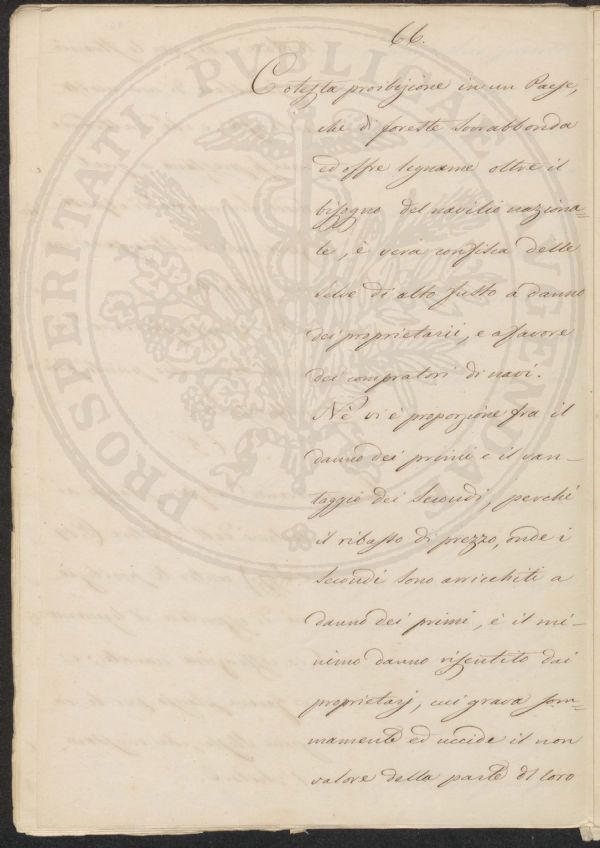 66.
Cotesta proibizione in un Paese,
che di foreste sovrabbonda
ed offre legname oltre il
bisogno del navilio naziona=
le, è vera confisca delle
selve di alto fusto a danno
dei proprietarii, e a favore
dei compratori di navi.
Nè vi è proporzione fra il
danno dei primi e il van-
taggio dei secondi, perchè
il ribasso di prezzo, onde i
secondi sono arricchiti a
danno dei primi, è il mi-
nimo danno risentito dai
proprietarj, cui grava som=
mamente ed uccide il non
valore della parte di loro
PROSPERITATI PUBLICAE AUGENDAE